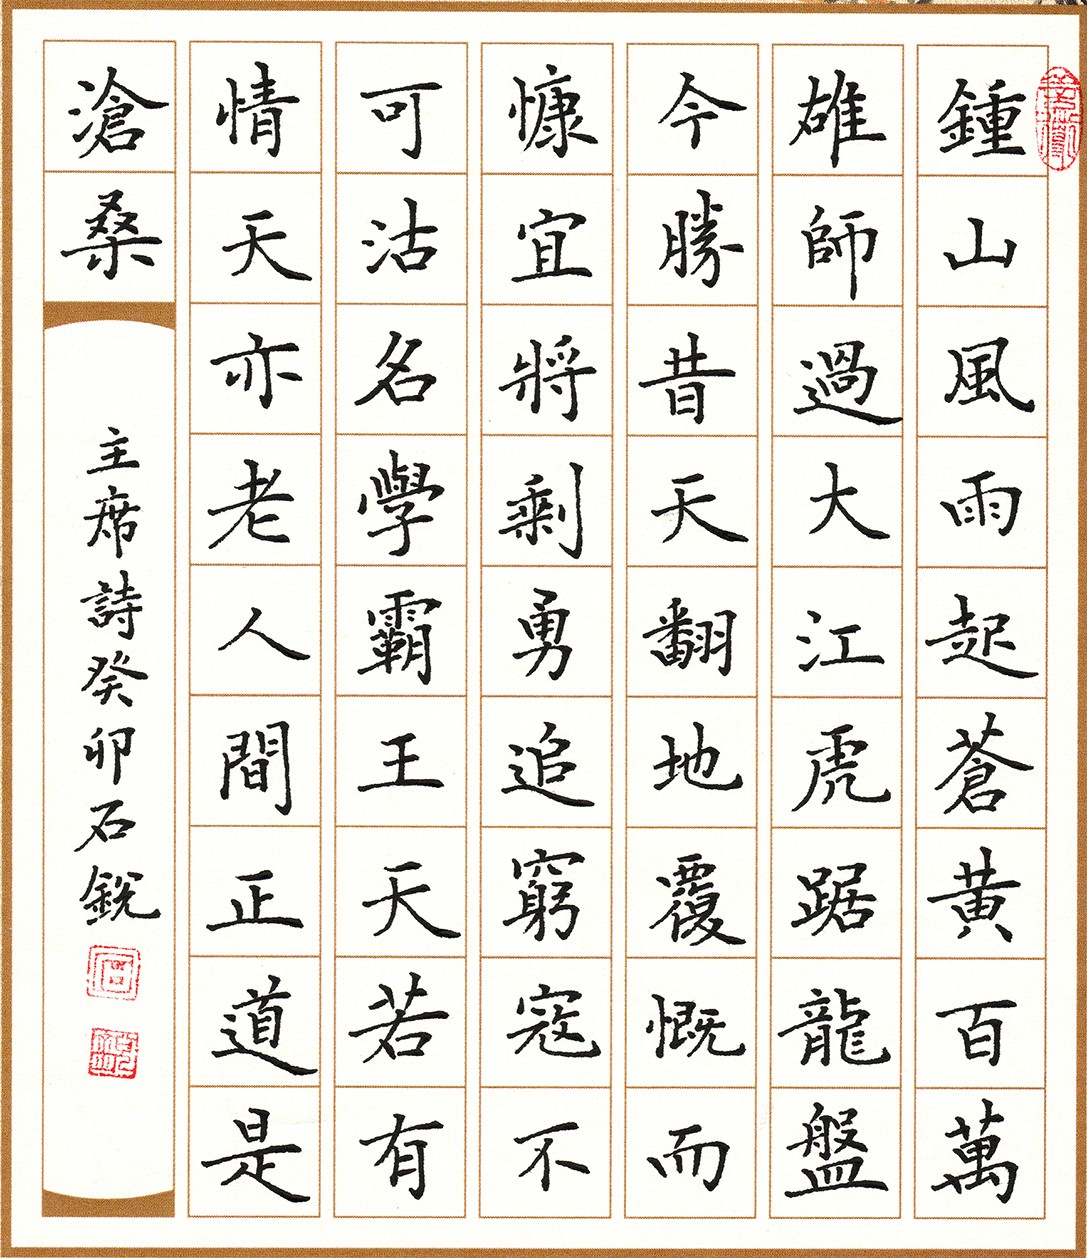 鍾山風雨起蒼黃百萬
雄師過大江虎踞龍盤
今勝昔天翻地覆慨而
慷宜將剩勇追窮寇不
可沽名學霸王天若有
情天亦老人間正道是
滄桑
主席詩癸卯石銳
石